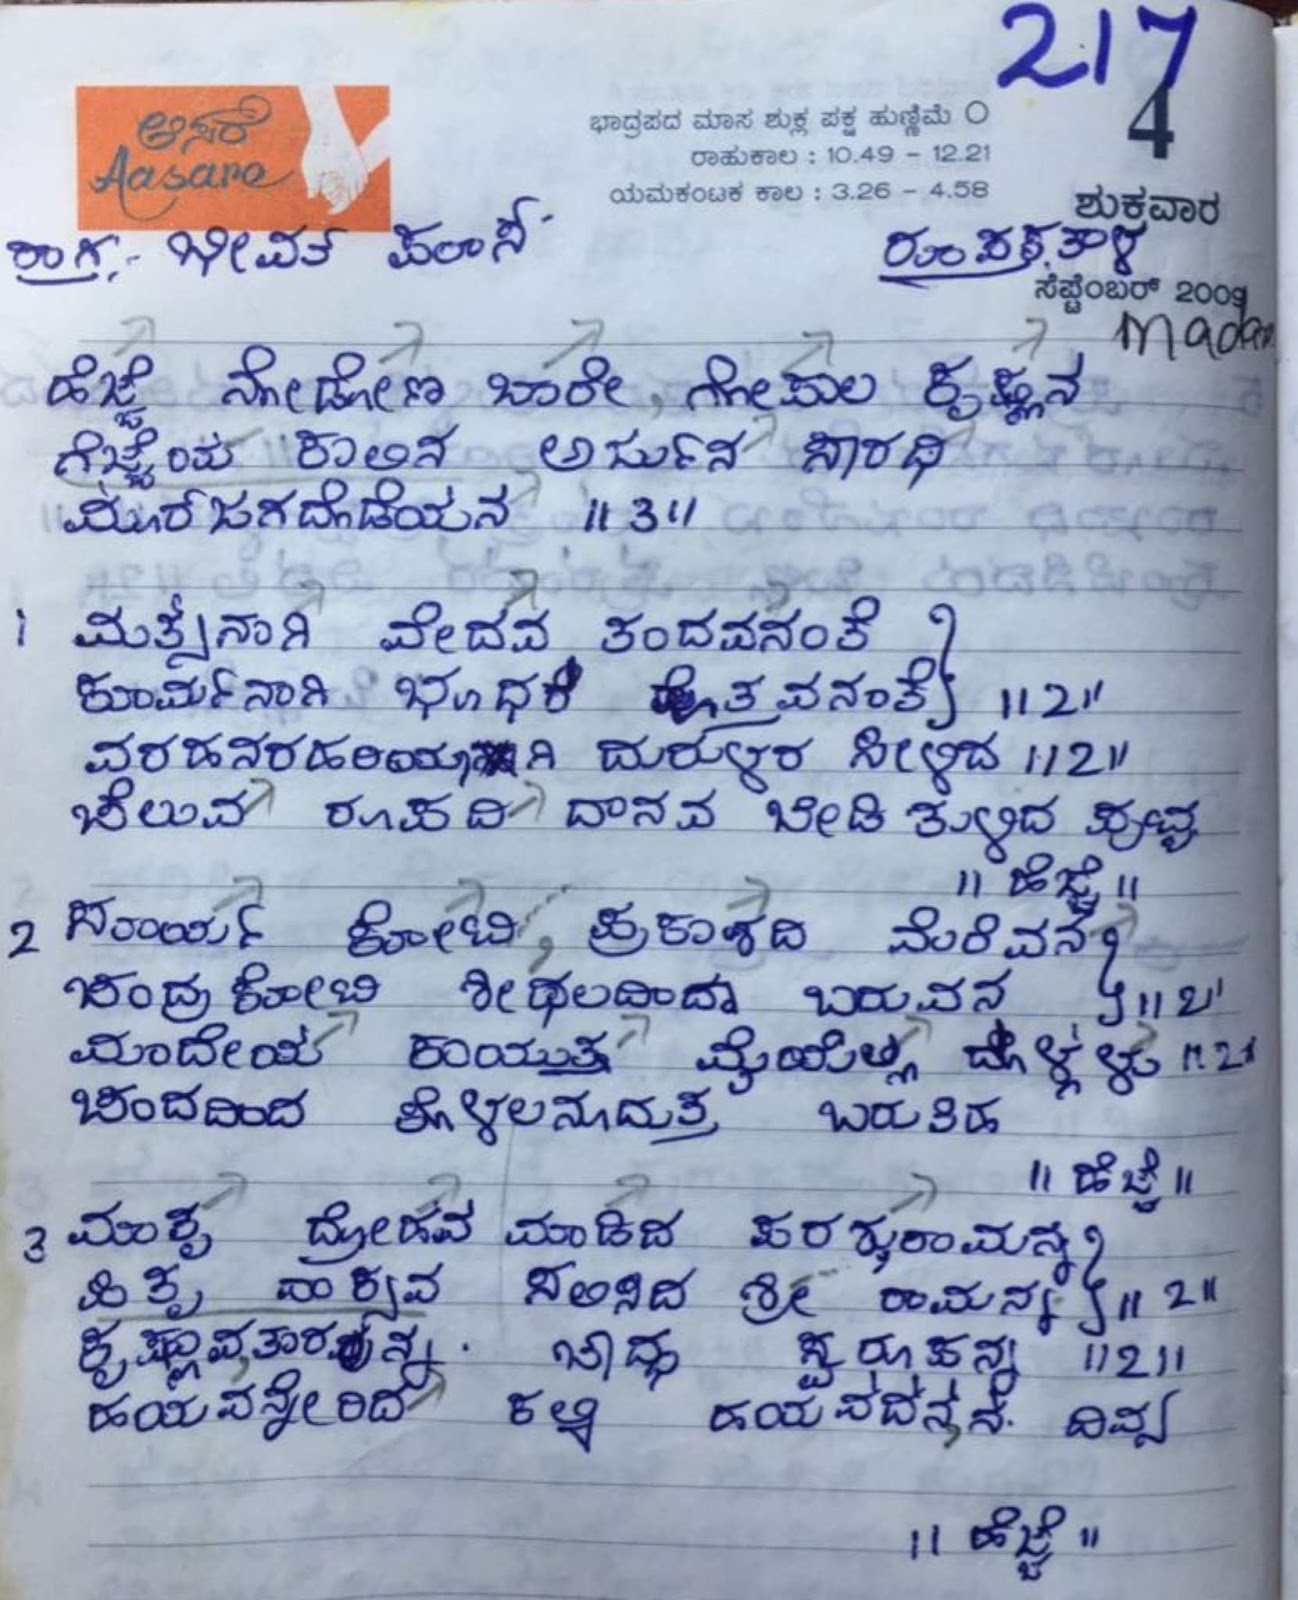 217
ಆಸರೆ
Aasare
ಭಾದ್ರಪದ ಮಾಸ ಶುಕ್ಲ ಪಕ್ಷ ಹುಣ್ಣಿಮೆ O
ರಾಹುಕಾಲ : 10.49 - 12.21
ಯಮಕಂಟಕ ಕಾಲ : 3.26 - 4.58
4
ಶುಕ್ರವಾರ
ಸೆಪ್ಟೆಂಬರ್ 2009
ರಾಗ:- ಭೀವತ ಪಲಾಸ್ ತಾಳ
ಹೆಜ್ಜೆ ನೋಡೋಣ ಬಾರೇ, ಗೋಪಾಲ ಕೃಷ್ಣನ
ಗೆಜ್ಜೆಯ ಕಾಲಿನ ಅರ್ಜುನ ಸಾರಥಿ
ಮೂರ್ಜಗದೊಡೆಯನ ॥3॥
1 ಮತ್ಸ್ಯನಾಗಿ ವೇದವ ತಂದವನಂತೆ
ಕೂರ್ಮನಾಗಿ ಭೂಧರ ಹೊತ್ತವನಂತೆ ॥2॥
ವರಹನರಹರಿಯಾಗಿ ದುರುಳರ ಸೀಳಿದ ॥2॥
ಚೆಲುವ ರೂಪದಿ ದಾನವ ಬೇಡಿ ತುಳಿದ
॥ ಹೆಜ್ಜೆ ॥
2 ಸೂರ್ಯ ಕೋಟಿ, ಪ್ರಕಾಶದಿ ಮೆರೆವನ
ಚಂದ್ರಕೋಟಿ ಶೀಥಲದಿಂದಾ ಬರುವನ ॥2॥
ಮಂದೇಯ ಕಾಯುತ್ತ ಮೈಯೆಲ್ಲ ॥2॥
ಚಂದದಿಂದ ಕೊಳಲನೂದುತ್ತ ಬರುತಿಹ
॥ ಹೆಜ್ಜೆ ॥
3 ಮಾತೃ ದ್ರೋಹವ ಮಾಡಿದ ಪರಶುರಾಮನ್ನ
ಪಿತೃ ವಾಕ್ಯವ ಸಲಿಸಿದ ಶ್ರೀ ರಾಮನ್ನ ॥2॥
ಕೃಷ್ಣಾವತಾರನ್ನ. ಬೌದ್ಧ ಸ್ವರೂಪನ್ನ ॥2॥
ಹಯವನ್ನೇರಿದ ಕಲ್ಕಿ ಹಯವದನ್ನನ ದಿವ್ಯ
॥ ಹೆಜ್ಜೆ ॥